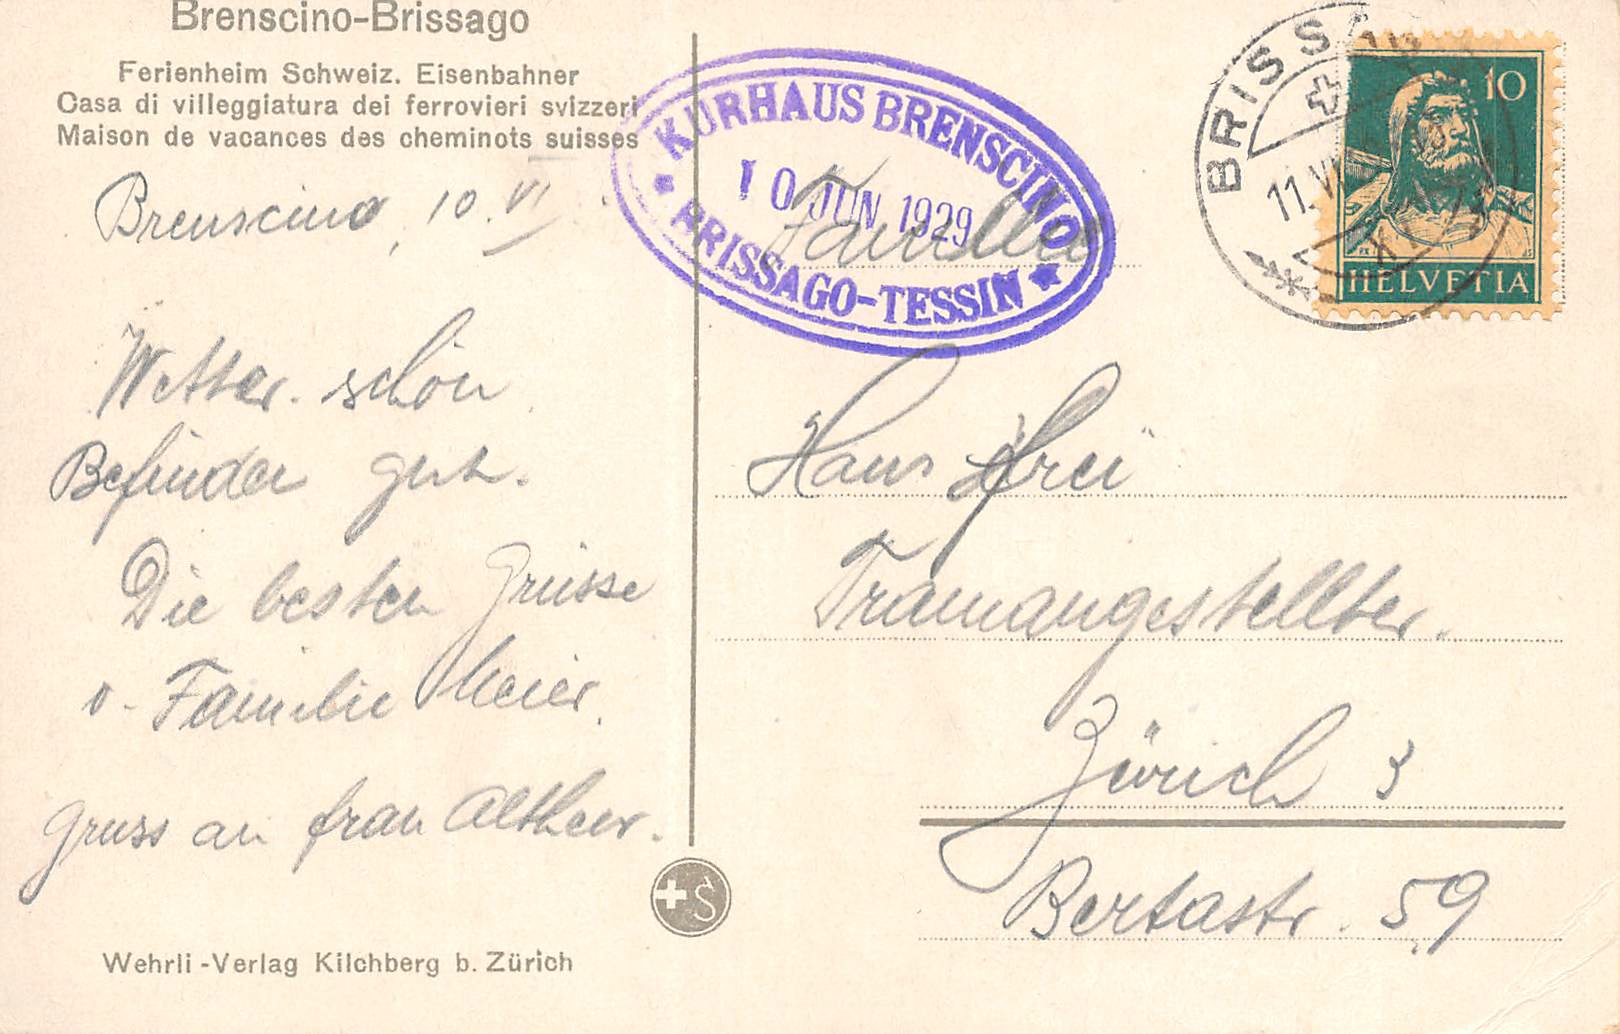 Brenscino-Brissago
Ferienheim Schweiz. Eisenbahner
Casa di villeggiatura dei ferrovieri svizzeri
Maison de vacances des cheminots suisses
Brenscino, 10. VI
Wetter schön
Befinden gut.
Die besten Grüsse
v. Familie Meier.
Gruss an Frau Altheer.
Wehrli-Verlag Kilchberg b. Zürich
KURHAUS BRENSCINO
10 JUN 1929
BRISSAGO-TESSIN
BRISSA
11. VI
10
HELVETIA
Familie
Hans Frei
Tramangestellter.
Zürich 3
Bertastr. 59